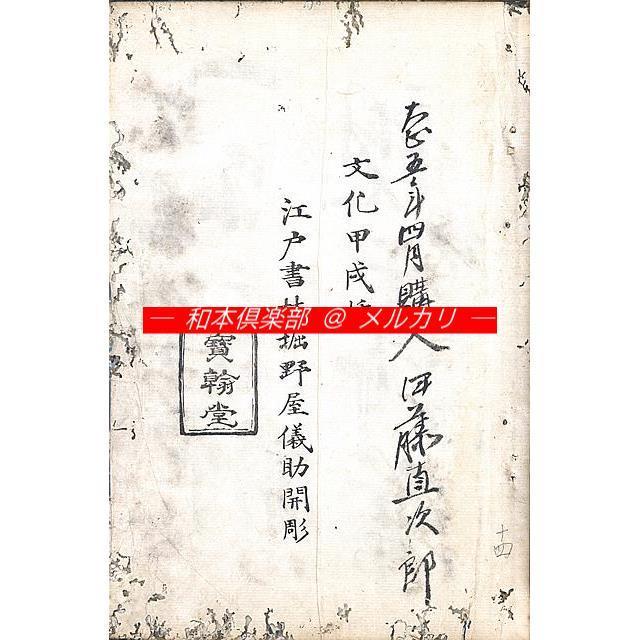 大正五年四月購入 伊藤直次郎
文化甲戌
江戸書林堀野屋儀助開彫
寶翰堂
— 和本倶楽部 @ メルカリ —
十四